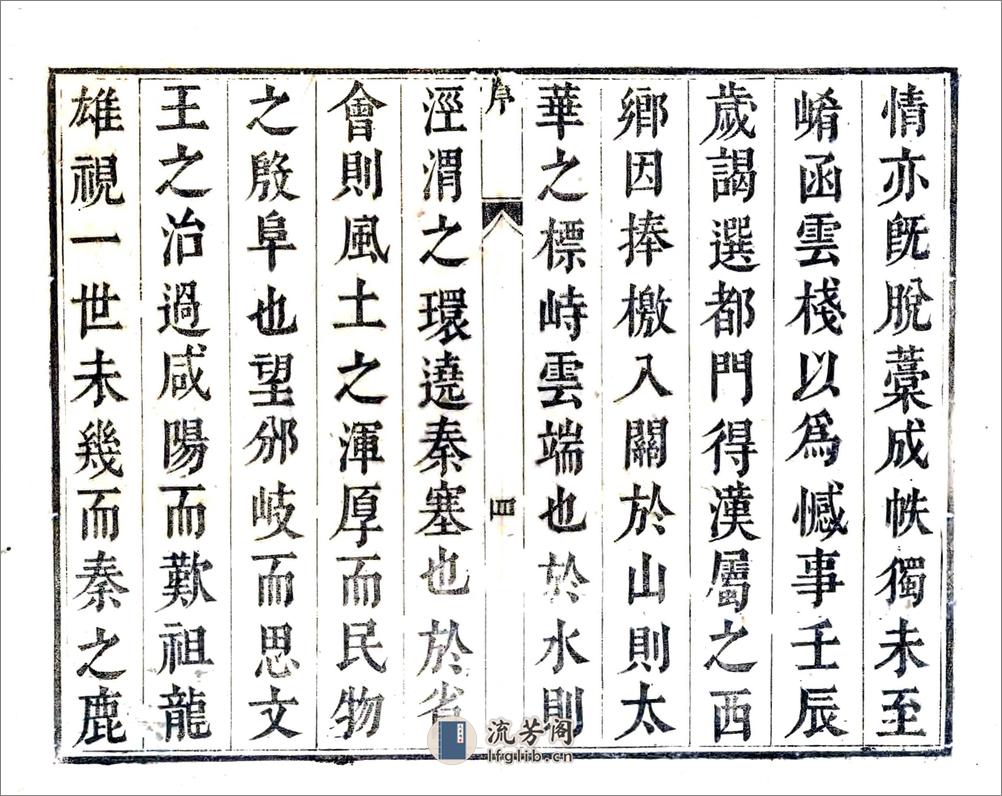 情亦旣脫藁成帙獨未至
崤函雲棧以爲憾事壬辰
歲謁選都門得漢屬之西
鄉因捧檄入關於山則太
華之標峙雲端也於水則
序
涇渭之環遶秦塞也於省
會則風土之渾厚而民物
之殷阜也望邠岐而思文
王之治過咸陽而歎祖龍
雄視一世未幾而秦之鹿
流芳阁
lfglib.cn